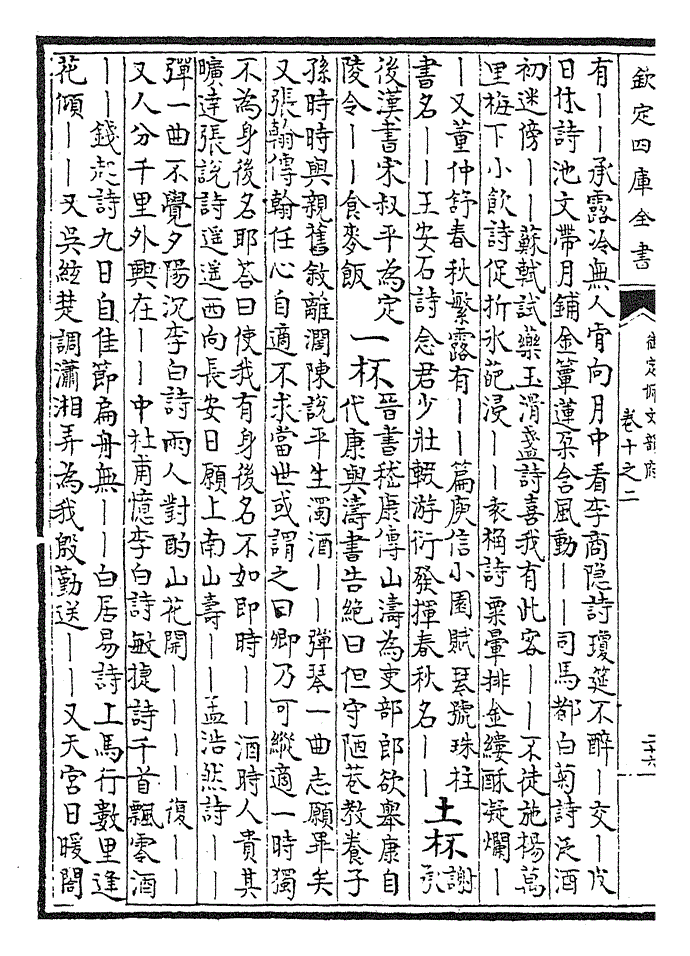 欽定四庫全書
御定佩文韻府
卷十之二
二十六
有——承露冷無人肯向月中看李商隱詩瓊筵不醉—交—皮
日休詩池文帶月鋪金簟蓮朶含風動——司馬都白菊詩泛酒
初迷傍——蘇軾試藥玉滑盞詩喜我有此客——不徒施楊萬
里梅下小飲詩促折氷葩浸——袁桷詩粟暈排金縷酥凝爛—
—又董仲舒春秋繁露有——篇庾信小園賦琴號珠柱
書名——王安石詩念君少壯輟游衍發揮春秋名——
土杯
謝承
後漢書宋叔平為定
陵令——食麥飯
一杯
晉書嵇康傳山濤為吏部郎欲舉康自
代康與濤書告絕曰但守陋巷教養子
孫時時與親舊敘離濶陳說平生濁酒——彈琴一曲志願畢矣
又張翰傳翰任心自適不求當世或謂之曰卿乃可縱適一時獨
不為身後名耶荅曰使我有身後名不如即時——酒時人貴其
曠達張說詩遥遥西向長安日願上南山壽——孟浩然詩——
彈一曲不覺夕陽沉李白詩兩人對酌山花開————復——
又人分千里外興在——中杜甫憶李白詩敏捷詩千首飄零酒
——錢起詩九日自佳節扁舟無——白居易詩上馬行數里逢
花傾——又吳絃楚調瀟湘弄為我殷勤送——又天宮日暖閣